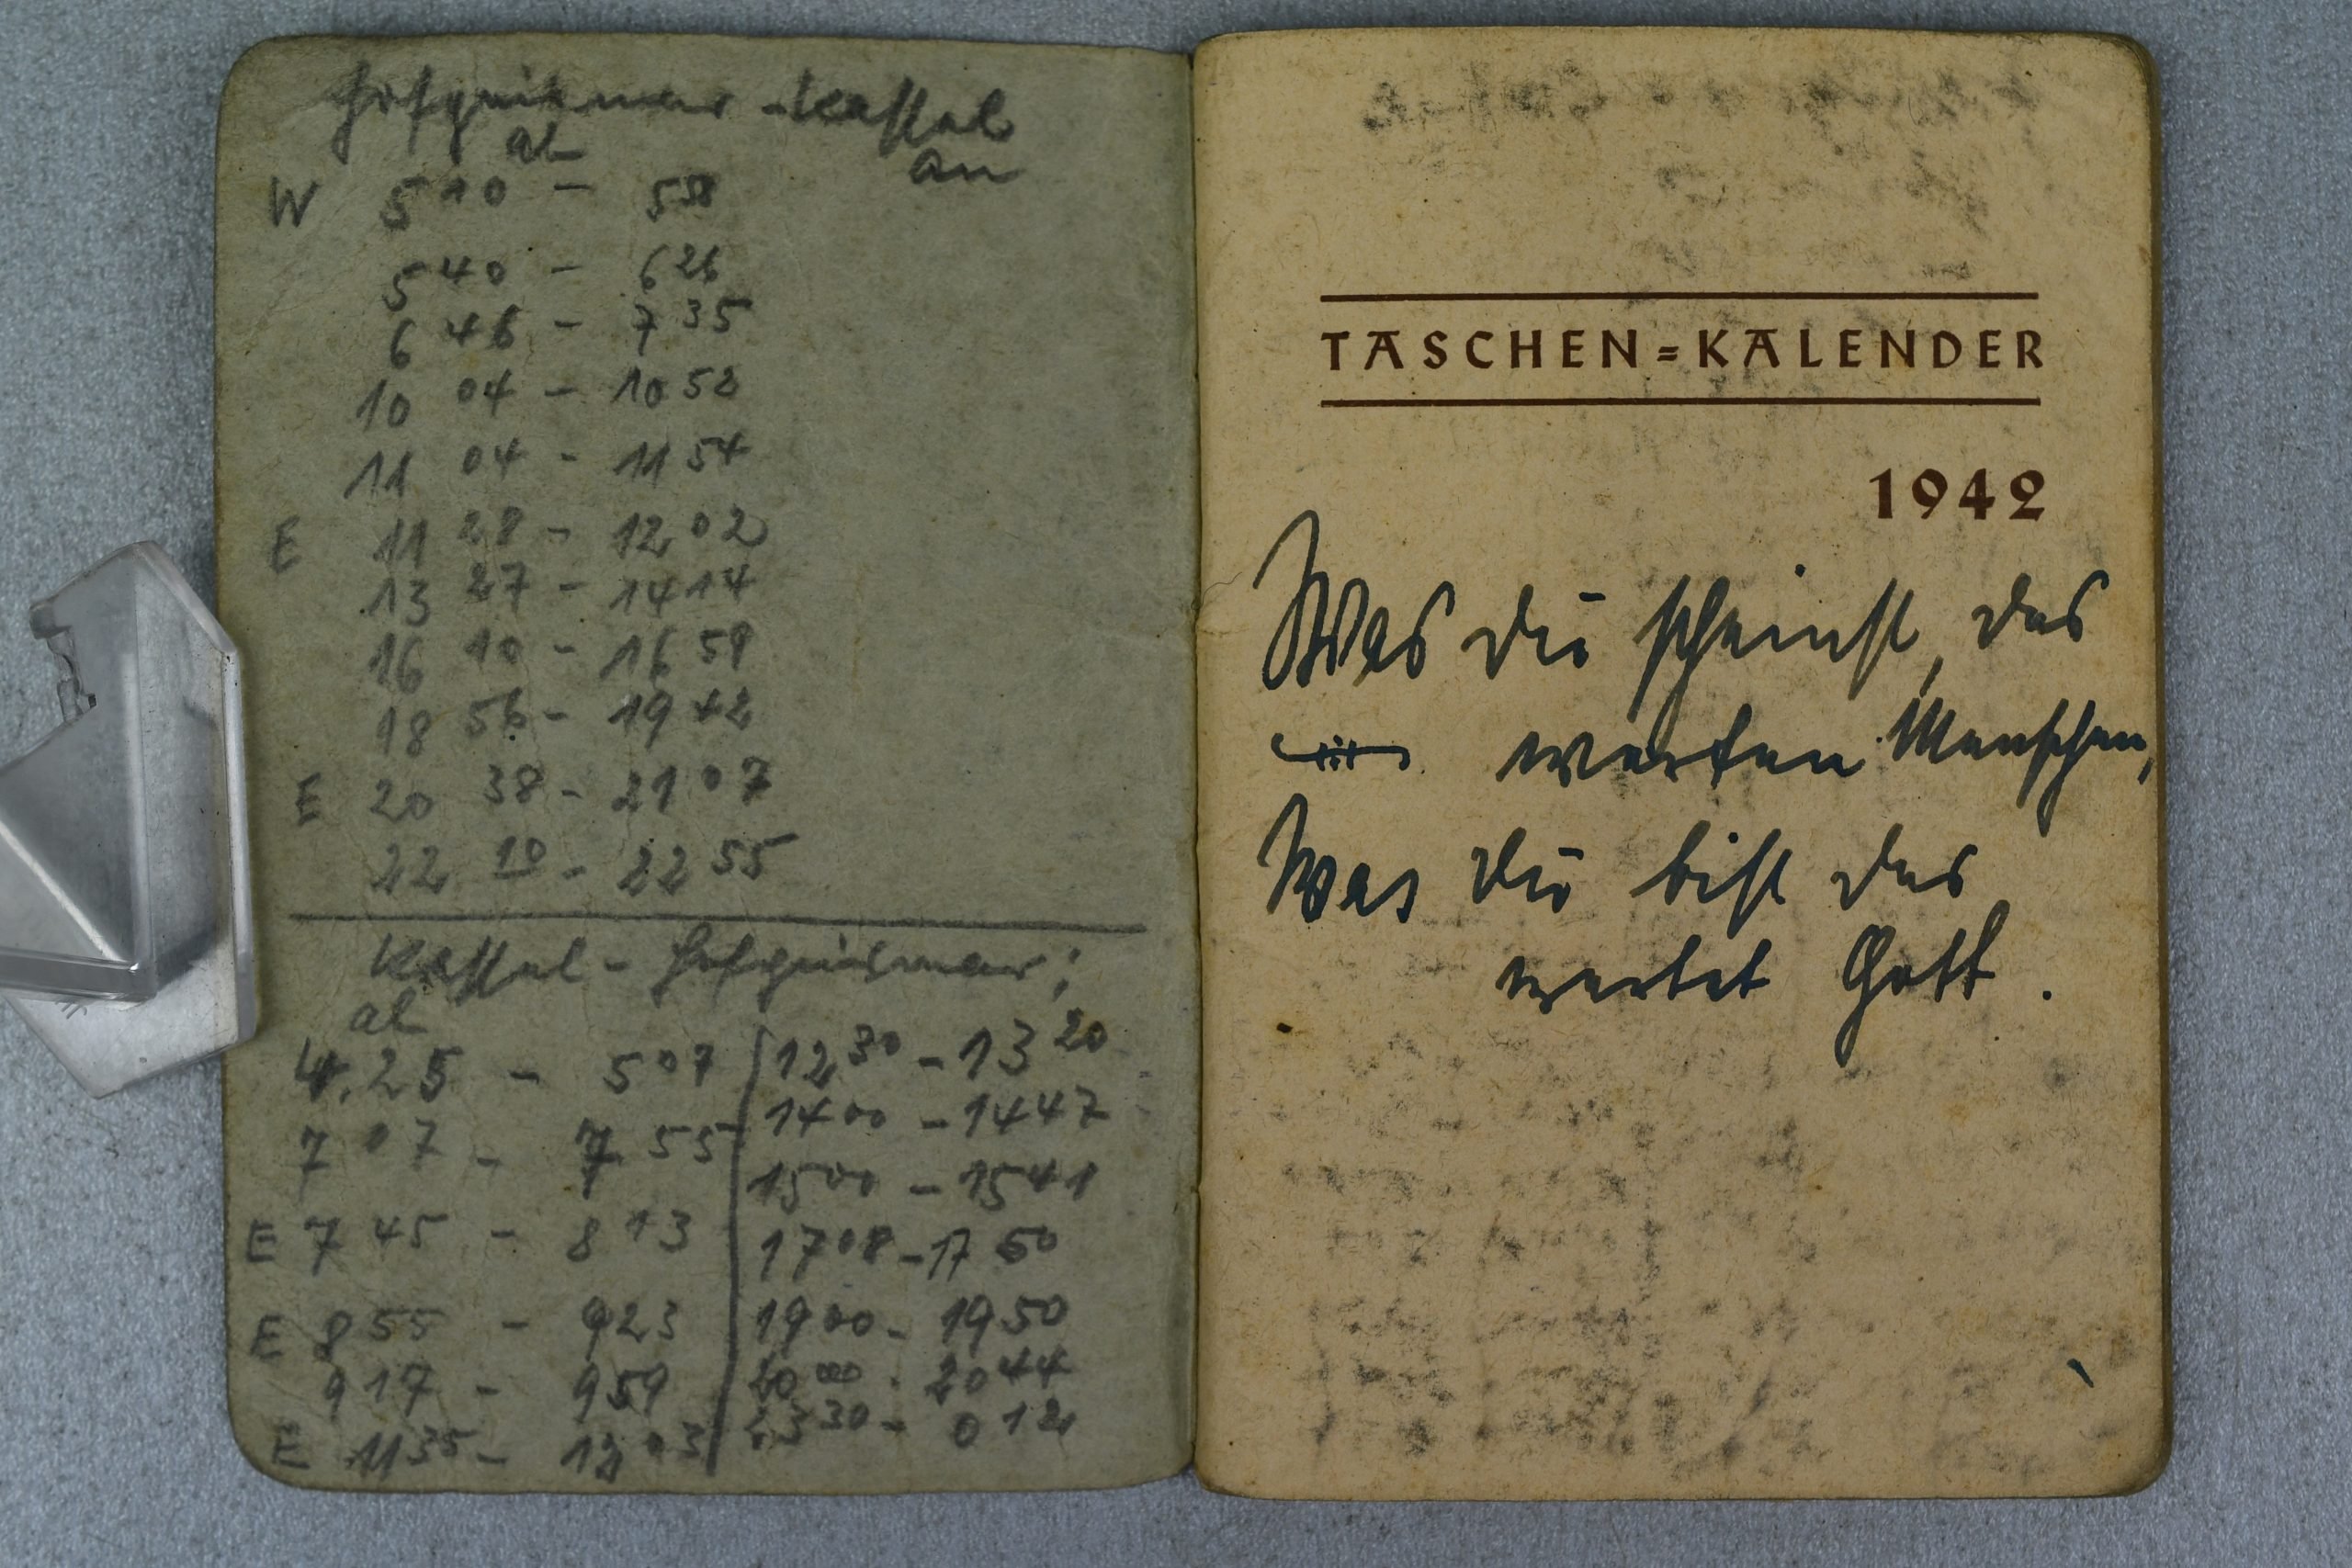 Hofgeismar - Kassel
ab an
W 5 10 - 5 58
5 40 - 6 26
6 46 - 7 35
10 04 - 10 52
11 04 - 11 54
E 11 28 - 12 02
13 27 - 14 14
16 10 - 16 59
18 56 - 19 42
E 20 38 - 21 07
22 10 - 22 55
Kassel - Hofgeismar:
ab
4.25 - 5 07
7 07 - 7 55
E 7 45 - 8 13
E 8 55 - 9 23
9 17 - 9 59
E 11 35 - 12 03
12 30 - 13 20
14 00 - 14 47
15 00 - 15 41
17 08 - 17 50
19 00 - 19 50
20 00 - 20 44
23 30 - 0 12
TASCHEN=KALENDER
1942
Was du scheinst, das
werten Menschen,
Was du bist das
wertet Gott.